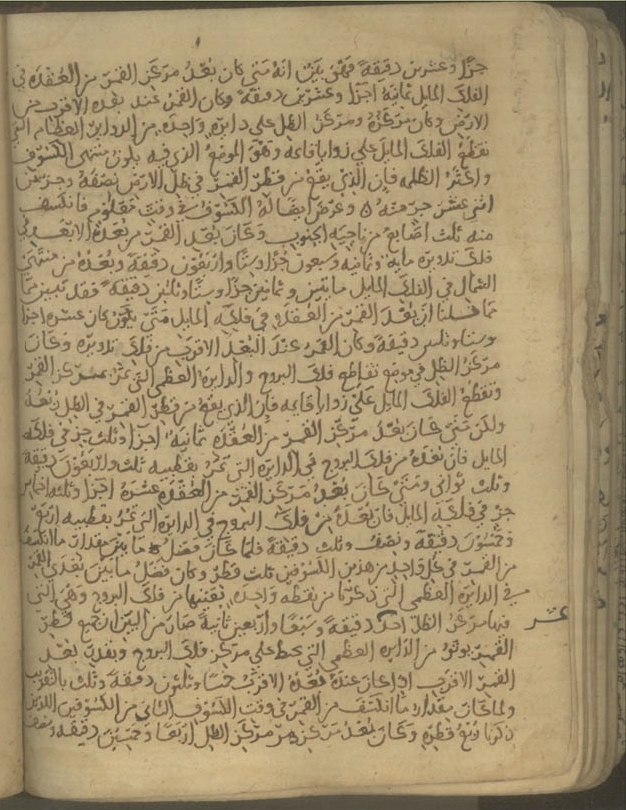 جزءا وعشرين دقيقة فهو بين انه متى كان بعد مركز القمر من العقدة في
الفلك المايل ثمانية اجزا وعشرين دقيقة وكان القمر عند بعده الاقرب من
الارض وكان مركزه ومركز الظل على دايرة واحدة من الدواير العظام التي
تقطع الفلك المايل على زوايا قايمة وهو الموضع الذي فيه يكون منتهى الكسوف
واكثر الظلمة فان الذي يقع من قطر القمر في ظل الارض نصفه وجزء من
اثنى عشر جز منه وعرض ايضا له الكسوف في وقت معلوم فانكسف
منه ثلث اصابع من ناحية الجنوب وكان بعد القمر من بعده الابعد في
فلك تدويره ماية وثمانية وسبعون جزا وستا واربعون دقيقة وبعده من منتهى
الشمال في الفلك المايل مايتين وثمانين جزا وستا وثلثين دقيقة فقد تبين مما
قلنا ان بعد القمر من العقدة في فلكه المايل متى يكون كان عشرة اجزا
وستا وثلثين دقيقة وكان القمر عند البعد الاقرب من فلك تدويره وكان
مركز الظل في موضع تقاطع فلك البروج والدايرة العظمى التي تمر بمركز القمر
وتقطع الفلك المايل على زوايا قايمة فان الذي يقع من قطر القمر في الظل ربعه
ولكن متى كان بعد مركز القمر من العقدة ثمانية اجزا وثلث جز في فلكه
المايل فان بعده من فلك البروج في الدايرة التي تمر بقطبيه ثلث واربعون دقيقة
وثلث ثواني ومتى كان بعد مركز القمر من العقدة عشرة اجزا وثلثة اخماس
جز في فلكه المايل فان بعده من فلك البروج في الدايرة التي تمر بقطبيه اربع
وخمسون دقيقة ونصف وثلث دقيقة فلما كان فضل ما بين مقدار ما انكسف
من القمر في كل واحد من هذين الكسوفين ثلث قطر وكان فضل ما بين بعدي القمر
في الدايرة العظمى التي ذكرنا من نقطة واحدة بعينها من فلك البروج وهي التي
فيها مركز الظل احدى دقيقة وسبعا واربعين ثانية صار من البين ان جميع قطر
القمر يوتر من الدايرة العظمى التي تخط على مركز فلك البروج وببعد بعد
القمر الاقرب اذا كان عند بعده الاقرب خمسا وثلثون دقيقة وثلث بالتقريب
ولما كان مقدار ما انكسف من القمر في وقت الكسوف الثاني من الكسوفين اللذين
ذكرنا ربع قطره وكان بعد مركزه من مركز الظل اربعا وخمسين دقيقة ونصف